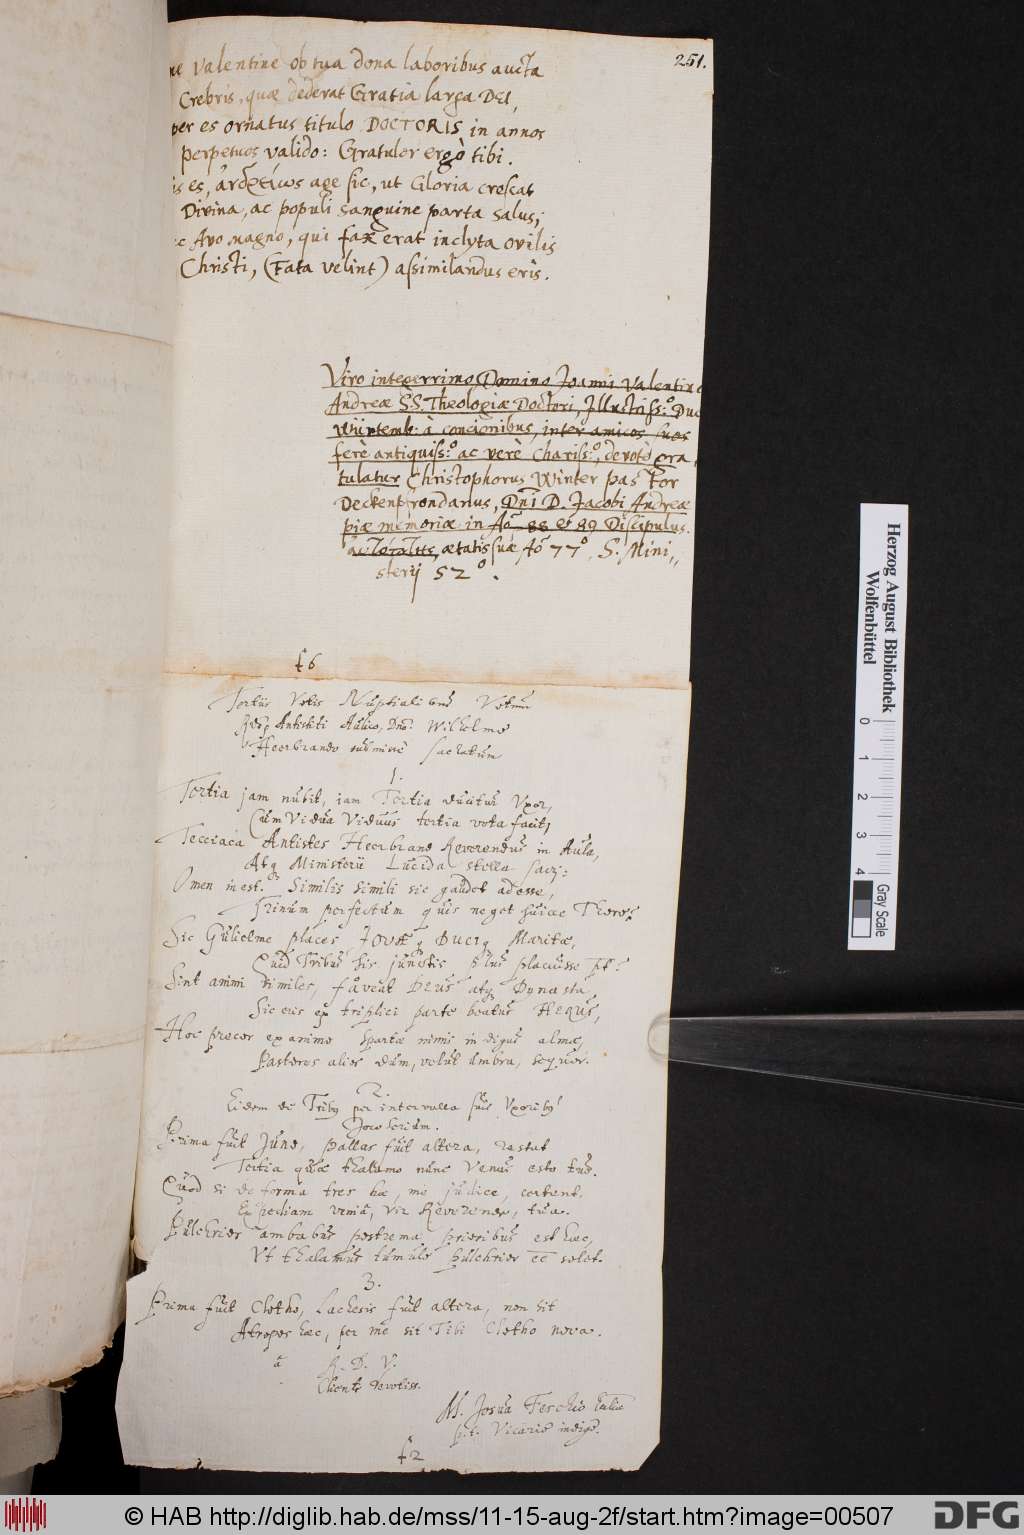 251.
ne Valentine ob tua dona laboribus aucta
Crebris, quæ dederat Gratia larga DEI,
per es ornatus titulo DOCTORIS in annos
perpetuos valido: Gratulor ergò tibi.
is es, age sic, ut Gloria crescat
Divina, ac populi sanguine parta salus;
c Avo magno, qui fax erat inclyta ovilis
Christi, (Fata velint) assimilandus eris.
Viro integerrimo, Domino Joanni Valentino
Andreæ S.S. Theologiæ Doctori, Illustriss:º Duc
Würtemb: à concionibus, inter amicos suos
ferè antiquiss:º ac verè chariss:º, devotè gra,
tulatur Christophorus Winter pastor
Deckenpfrondanus, Dnî D. Jacobi Andreæ
piæ memoriæ in Aº 88 & 89 Discipulus.
ætatis suæ Aº 77º, S. Mini,,
sterij 52º.
f 6
Tertiis Votis Nuptialibus Votum
Antistiti Aulico, Dno. Wilhelmo
Heerbrando submissè sacratum
1.
Tertia jam nubit, jam Tertia ducitur Uxor,
Cum Vidua Viduus tertia vota facit,
Tecciaca Antistes Heerbrand Reverendus in Aula,
Atq Ministerii Lucida stella sacri:
Omen inest. Similis simili sic gaudet adesse,
Trinum perfectum quis neget huicce Thoro?
Sic Gulielme places, Jovæq Ducrq Maritæ,
Quid Tribus his junctis plus placuisse pt?
Sint animi similes, faveat Deus atq Dynasta
Sic eris ex triplici parte beatus Herus,
Hoc precor ex animo Spartæ nimis indigus almæ,
Pastores alios dum, velut umbra, sequor.
2.
Eidem de Tribq per intervalla suis Uxoribq
Joco serium.
Prima fuit Juno, Pallas fuit altera, restat
Tertia quæ thalamo nunc Venus esto tuo.
Quod si de forma tres hæ, me judice, certent.
Expediam verniâ, Vir Reverende, tua.
Pulchrior ambabus postrema prioribus est hæc,
Ut thalamus tumulo pulchrior eê solet.
3.
Prima fuit Clotho, Lachesis fuit altera, non sit
Atropos hæc, per me sit Tibi Clotho nova.
à R. D. V.
Cliente devotiss.
M. Josua
p.t. Vicario indigº.
f 2
Herzog August Bibliothek
Wolfenbüttel
0 1 2 3 4
Gray Scale
© HAB http://diglib.hab.de/mss/11-15-aug-2f/start.htm?image=00507
DFG